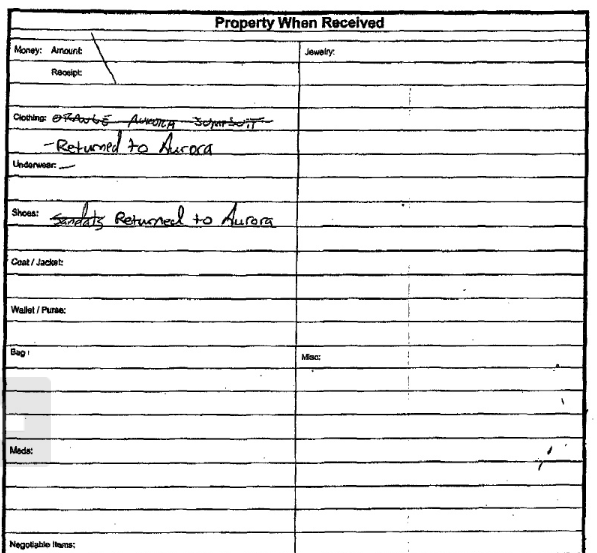 Property When Received
Money: Amount:
Receipt:
Jewelry:
Clothing: ORANGE AURORA JUMPSUIT
- Returned to Aurora
Underwear: —
Shoes: Sandals Returned to Aurora
Coat / Jacket:
Wallet / Purse:
Bag:
Misc:
Meds:
Negotiable Items: